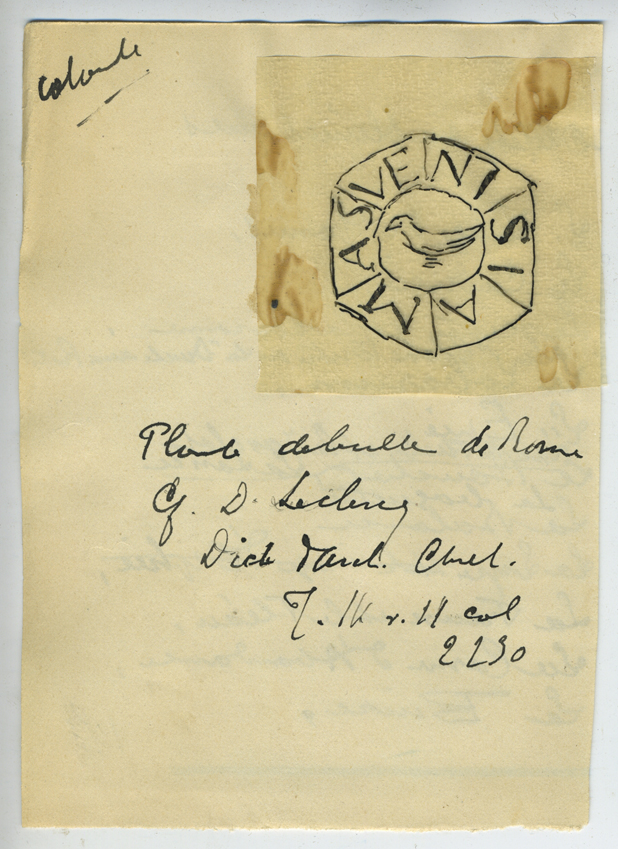 colombe
VENI SI AMAS
de bulle de Rome
Cf. D. Leclercq
Dict d'arch. Chret.
T. v. II col
2230